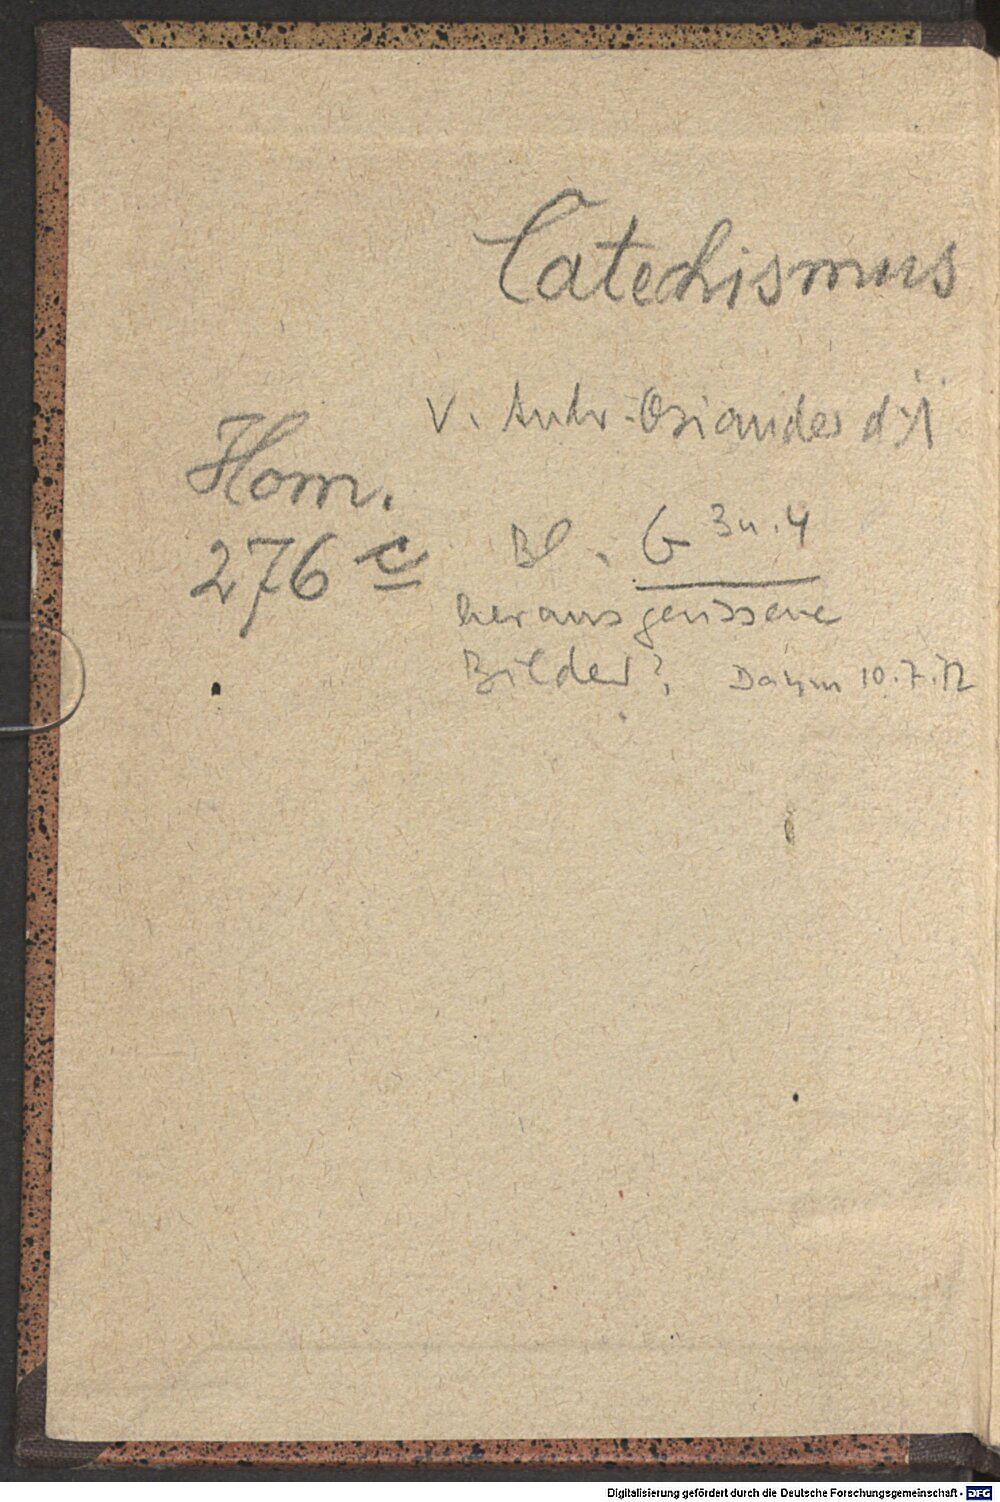 Catechismus
v. Andr. Osiander d. Ä
Hom.
276 c
Bl. G 3 u. 4
herausgerissene
Bilder? 10.7.72
Digitalisierung gefördert durch die Deutsche Forschungsgemeinschaft - DFG